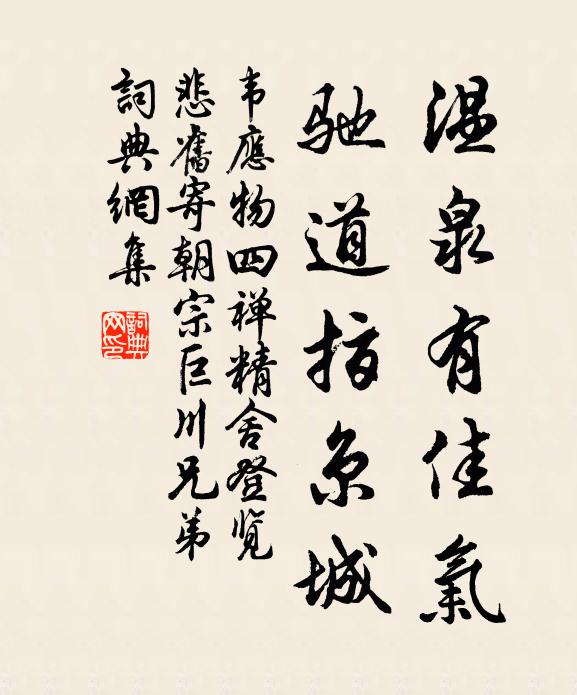 温泉有佳氣
馳道指京城
韦應物四禅精舍登览
悲舊寄朝宗巨川兄弟
詞典網集
詞典
网印